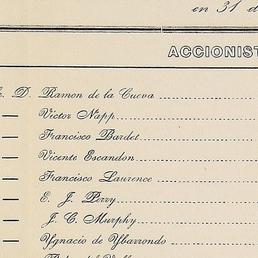 en 31 d
ACCIONIST
D. Ramon de la Cueva
— Victor Napp
— Francisco Bardet
— Vicente Escandon
— Francisco Laurence
— E. J. Perry
— J. C. Murphy
— Ygnacio de Ybarrondo